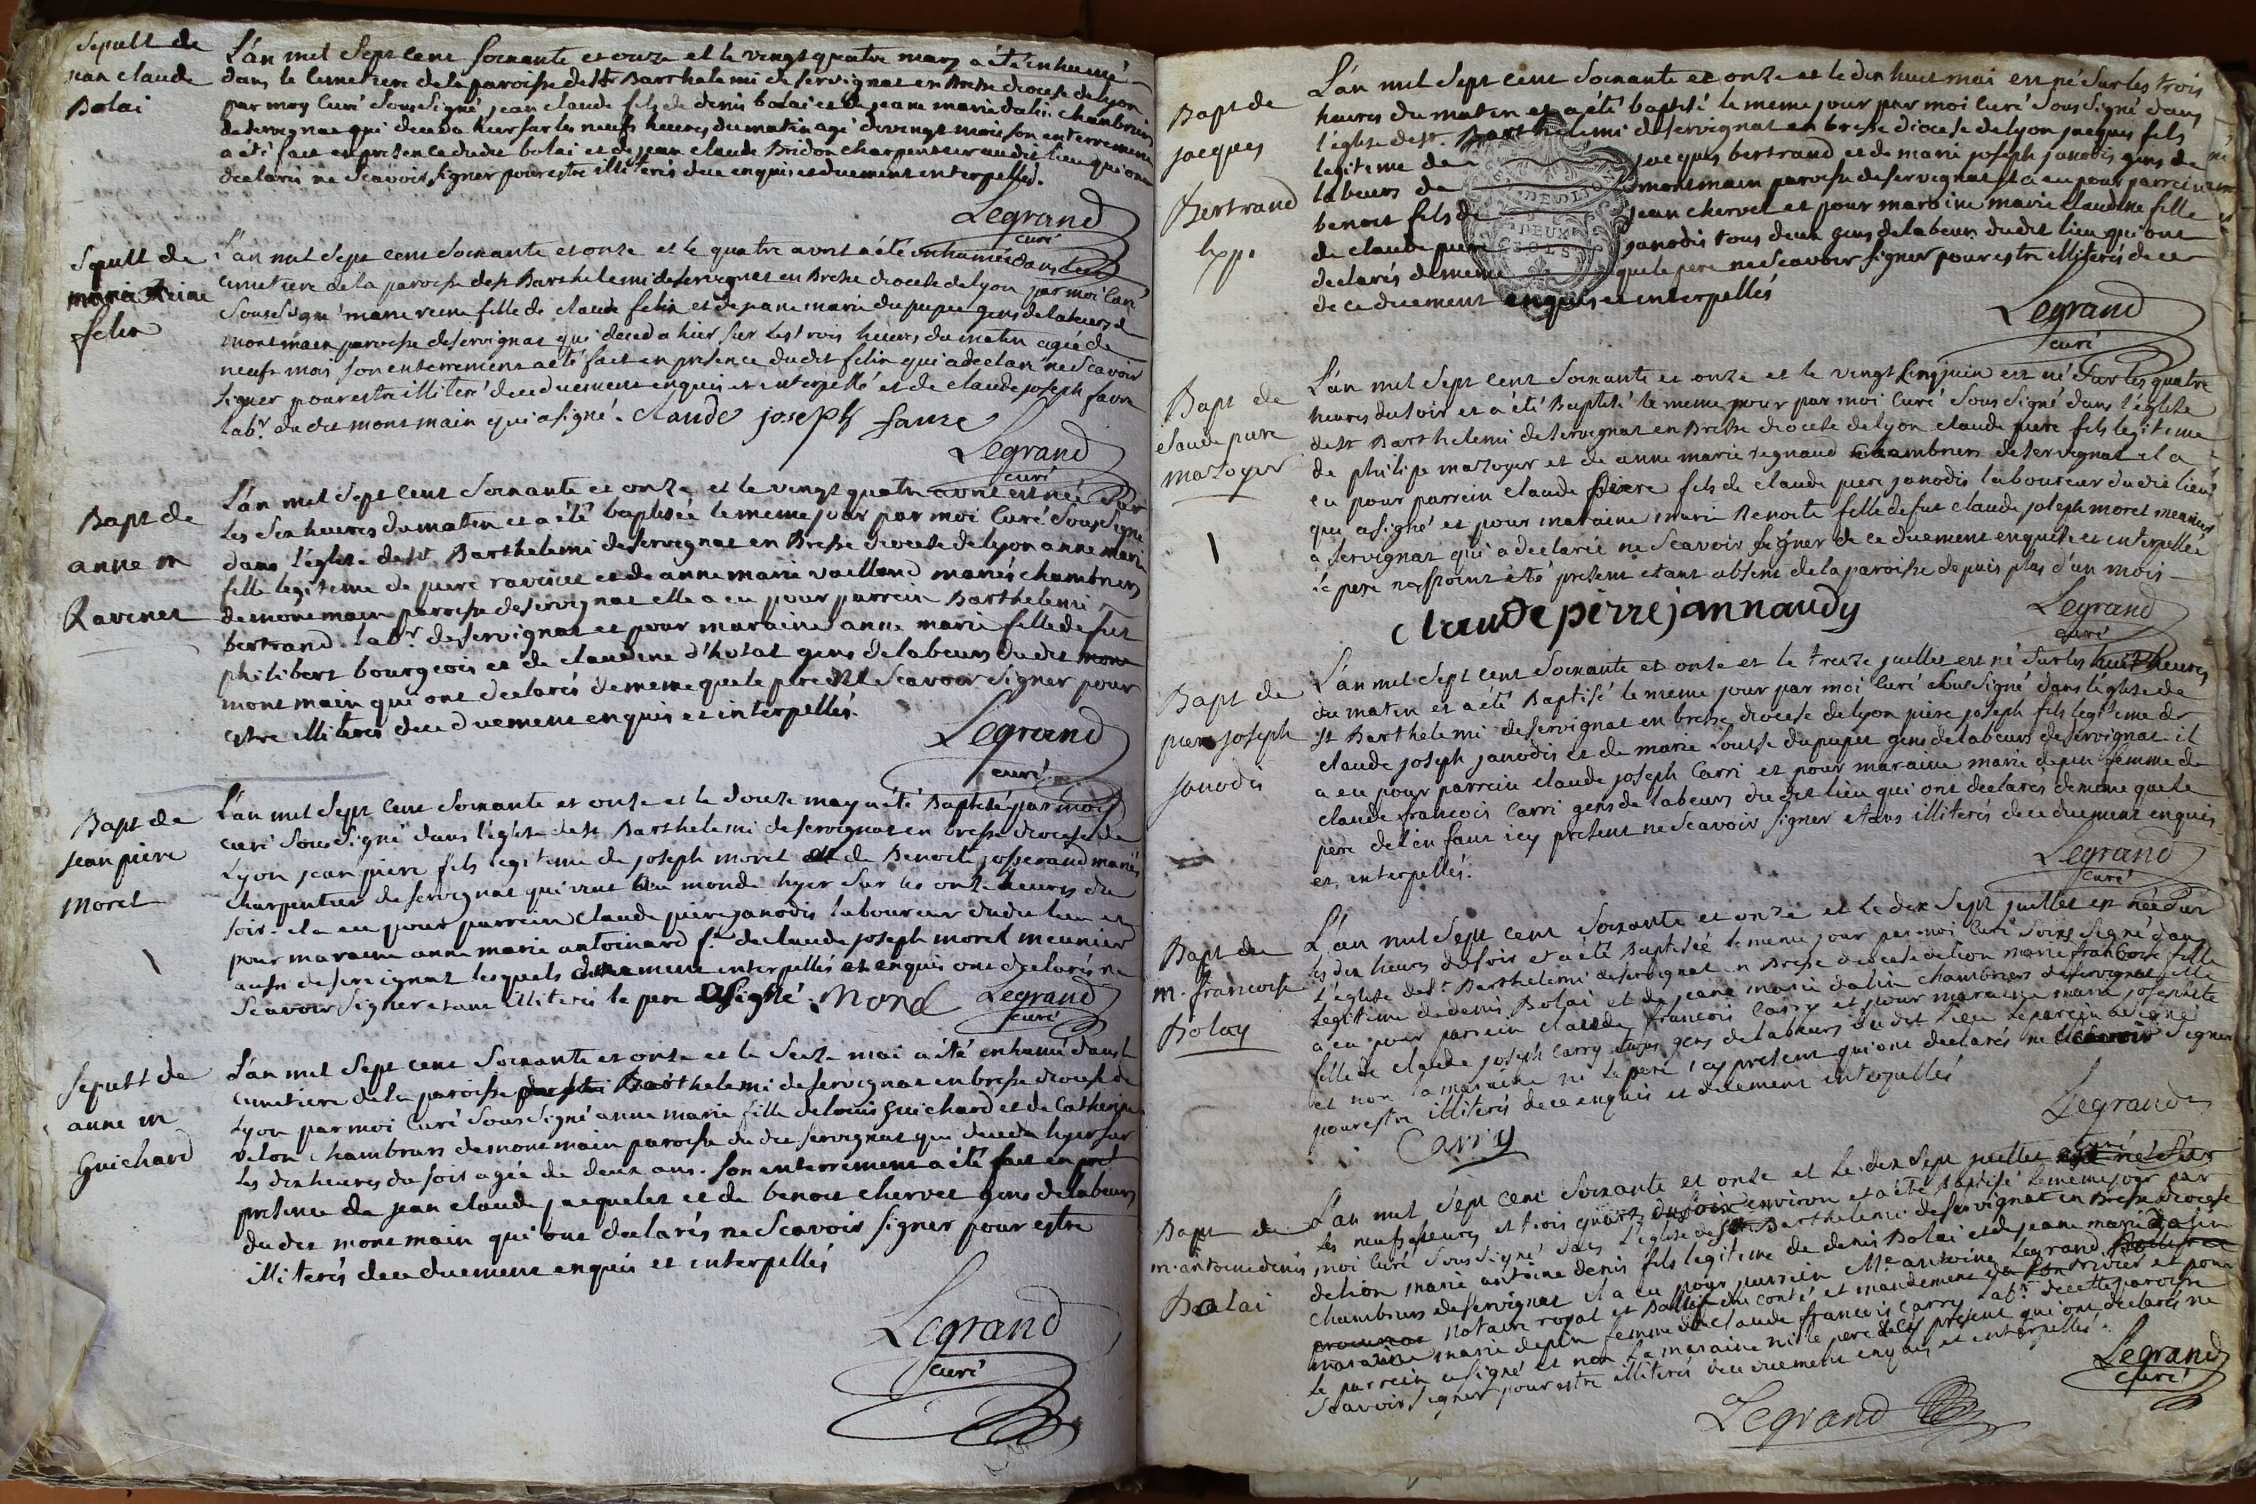 Sepult de
jean claude
Bolai
L'an mil sept cent soixante et onze et le vingt quatre mars a été enhumé
dans le cimetiere de la paroisse de st Barthelemi de servignat en Bresse diocese de lyon
par moy curé soussigné jean claude fils de denis bolai et de jeane marie dalin chambriers
de servignat qui deceda hier sur les neufs heures du matin agé de vingt mois son enterrement
a été fait en presence dudit bolai et de jean claude Bridon charpentier audit lieu qui ont
declarés ne scavoir signer pour estre illiterés de ce enquis et duement interpellés.
Legrand
curé
Sepult de
marie Reine
felix
L'an mil sept cent soixante et onze et le quatre avril a été enhumée dans le
cimetiere de la paroisse de st Barthelemi de servignat en Bresse diocese de lyon par moi curé
soussigné marie reine fille de claude felix et de jeane marie dupupet gens de labeurs de
montmain paroisse de servignat qui deceda hier sur les trois heures du matin agée de
neufs mois son enterrement a été fait en presence dudit felix qui a declaré ne scavoir
signer pour estre illiteré de ce duement enquis et interpellé et de claude joseph favre
labr. du dit montmain qui a signé. Claude joseph faure
Legrand
curé
Bapt de
anne m
Ravinet
L'an mil sept cent soixante et onze et le vingt quatre avril est née sur
les six heures du matin et a été baptisée le meme jour par moi curé soussigné
dans l'église de st Barthelemi de servignat en Bresse diocese de lyon anne marie
fille legitime de piere ravinet et de anne marie vailland mariés chambriers
de montmain paroisse de servignat elle a eu pour parrein Barthelemi
bertrand labr de servignat et pour maraine anne marie fille de fut
philibert bourgeois et de claudine d'hotal gens de labeurs du dit mont
montmain qui ont declarés de meme que le pere ne scavoir signer pour
estre illiterés de ce duement enquis et interpellés.
Legrand
curé
Bapt de
jean piere
moret
L'an mil sept cent soixante et onze et le douze may a été Baptisé par moi
curé soussigné dans l'église de st Barthelemi de servignat en bresse diocese de
Lyon jean piere fils legitime de joseph moret et de Benoite josserand mariés
charpentier de servignat qui vint au monde hyer sur les onze heures du
soir. il a eu pour parrein claude piere janodis laboureur du dit lieu et
pour maraine anne marie antoinard f.e de claude joseph moret meunier
aussi de servignat lesquels duement interpellés et enquis ont declarés ne
scavoir signer etant illiterés le pere a signé. Morel
Legrand
curé
Sepult de
anne m
Guichard
L'an mil sept cent soixante et onze et le seize mai a été enhumé dans le
cimetiere de la paroisse de st Barthelemi de servignat en bresse diocese de
Lyon par moi curé soussigné anne marie fille de louis Guichard et de Catherine
velon chambriers de montmain paroisse du dit servignat qui deceda hyer sur
les dix heures du soir agée de deux ans. son enterrement a été fait en
presence de jean claude jacquelet et de benoit chervet gens de labeurs
du dit montmain qui ont declarés ne scavoir signer pour estre
illiterés de ce duement enquis et interpellés
Legrand
curé
Bapt de
jacques
Bertrand
L'an mil sept cent soixante et onze et le dix huit mai est né sur les trois
heures du matin et a été baptisé le meme jour par moi curé soussigné dans
l'église de st. Barthelemi de servignat en bresse diocese de lyon jacques fils
legitime de jacques bertrand et de marie joseph janodis gens de
labeurs de montmain paroisse de servignat il a eu pour parrein
benoit fils de jean chervet et pour maraine marie claudine fille
de claude piere janodis tous deux gens de labeurs du dit lieu qui ont
declarés de meme que le pere ne scavoir signer pour estre illiterés de ce
de ce duement enquis et interpellés
Legrand
curé
Bapt de
claude piere
mazoyer
L'an mil sept cent soixante et onze et le vingt cinq juin est né sur les quatre
heures du soir et a été Baptisé le meme jour par moi curé soussigné dans l'église
de st Barthelemi de servignat en Bresse diocese de lyon claude piere fils legitime
de philipe mazoyer et de anne marie regnaud chambriers de servignat il a
eu pour parrein claude piere fils de claude piere janodis laboureur du dit lieu
qui a signé et pour maraine marie Benoite fille de fut claude joseph moret meunier
a servignat qui a declarée ne scavoir signer de ce duement enquise et interpellée
le pere n'a point été present etant absent de la paroisse depuis plus d'un mois
Claude pirre jannaudy
Legrand
curé
Bapt de
piere joseph
janodis
L'an mil sept cent soixante et onze et le treize juillet est né sur les huit heures
du matin et a été Baptisé le meme jour par moi curé soussigné dans l'église de
st Barthelemi de servignat en bresse diocese de lyon piere joseph fils legitime de
claude joseph janodis et de marie louise dupupet gens de labeurs de servignat il
a eu pour parrein claude joseph Carri et pour maraine marie depin femme de
claude francois Carri gens de labeurs du dit lieu qui ont declarés de meme que le
pere de l'enfant icy present ne scavoir signer etans illiterés de ce duement enquis
et interpellés.
Legrand
curé
Bapt de
m. francoise
Bolay
L'an mil sept cent soixante et onze et le dix sept juillet est née sur
les dix heures du soir et a été Baptisée le meme jour par moi curé soussigné dans
l'église de st Barthelemi de servignat en Bresse diocese de lion marie francoise fille
legitime de denis Bolai et de jeane marie dalin chambriers de servignat elle
a eu pour parrein claude francois Carry et pour maraine marie josephte
fille de claude joseph Carry tous gens de labeurs du dit lieu le parrein a signé
et non la maraine ni le pere icy present qui ont declarés ne scavoir signer
pour estre illiterés de ce enquis et duement interpellés
Carry
Legrand
curé
Bapt de
m. antoine denis
Bolai
L'an mil sept cent soixante et onze et le dix sept juillet est né sur
les neufs heures et trois quarts du soir environ et a été Baptisé le meme jour par
moi curé soussigné dans l'église de st Barthelemi de servignat en Bresse diocese
de lion marie antoine denis fils legitime de denis Bolai et de jeane marie dalin
chambriers de servignat il a eu pour parrein Me antoine Legrand
notaire royal et Baillif du conté et mandement et pour
maraine marie depin femme de claude francois Carry labr. de cette paroisse
le parrein a signé et non la maraine ni le pere icy present qui ont declarés ne
scavoir signer pour estre illiterés de ce duement enquis et interpellés.
Legrand
Legrand
curé